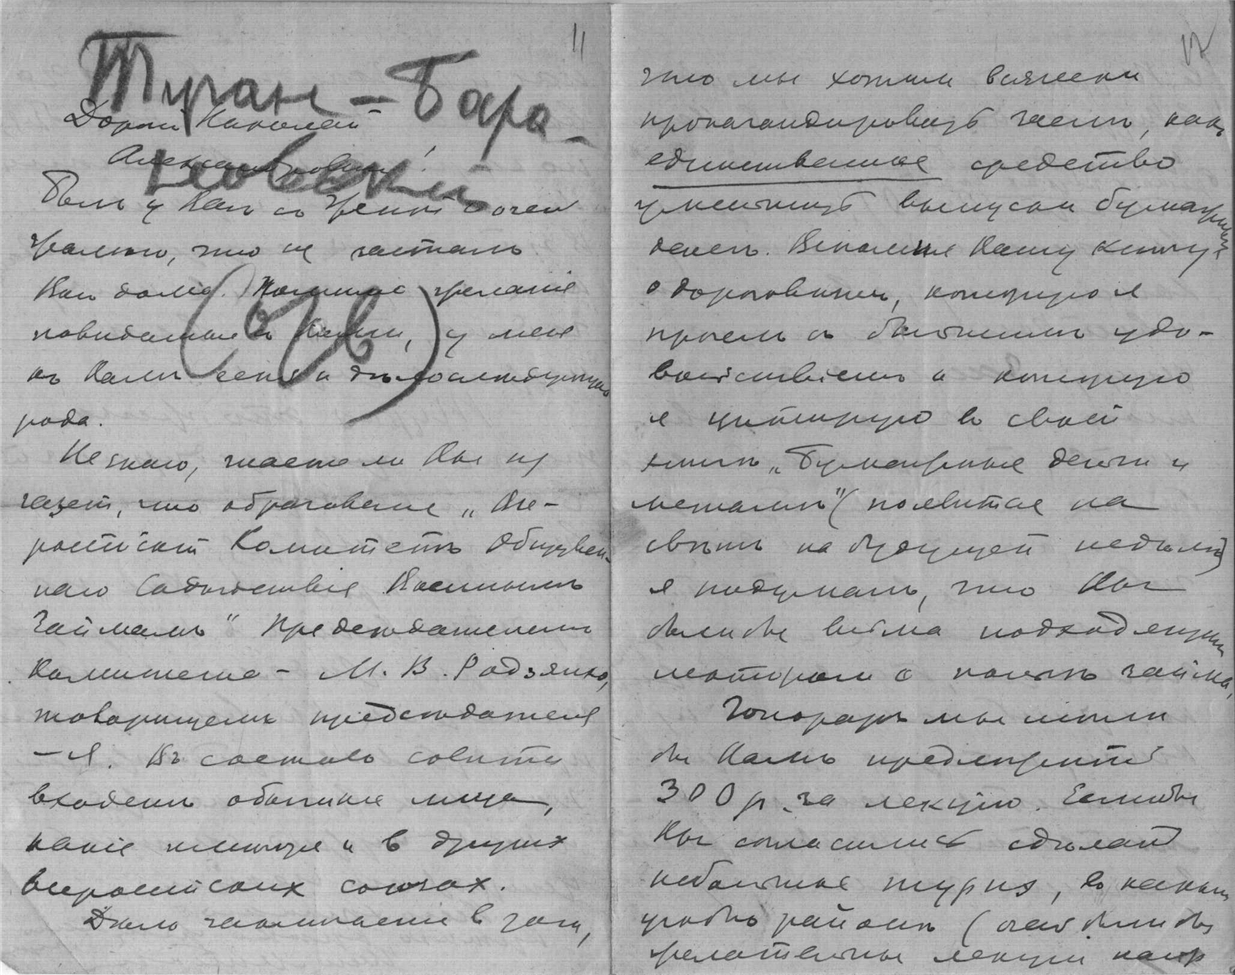 11
Туган-Бара-
новский
Дорогой Николай
Александрович!
Былъ у Васъ съ Эрении очен
жалею, что не засталъ
Васъ дома. Помимо желанія
повидаться съ Вами, у меня
къ Вамъ есть и дело следующаго
рода.
Не знаю, знаете ли Вы из
газет, что образован „Все-
російскій Комитетъ Обществен-
наго Содействія Военнымъ
Займамъ“ Председателемъ
Комитета – М. В. Родзянко,
товарищемъ председателя
– я. Въ составъ совета
входятъ обычные лица,
какіе имеются и в других
всеросcійских союзах.
Дело заключается в том,
что мы хотим всячески
пропагандировать заем, какъ
единственное средство
уменьшить выпуски бумажных
денег. Вспомня Вашу книгу
о дороговизне, которую я
прочелъ съ большимъ удо-
вольствіемъ и которую
я цитирую въ своей
книге „Бумажные деньги и
металлъ“ (появится на
светъ на будущей неделе)
я подумалъ, что Вы
были бы весьма подходящим
лекторомъ о новомъ займе.
Гонораръ мы могли
бы Вамъ предложить
300 р. за лекцію. Если бы
Вы согласились сделать
небольшое турнэ, въ каком
угодно районе (очень были бы
желательны лекціи напр